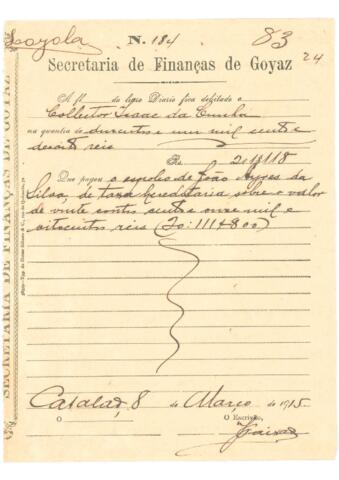 Loyola
N. 184
83
24
Secretaria de Finanças de Goyaz
A fl. do livro Diario fica debitado o
Collector Isaac da Cunha
na quantia de duzentos e um mil cento e
desoito reis
Rs 201$118
Que pagou o espolio de João Ayres da
Silva, de taxa hereditaria sobre o valor
de vinte contos cento e onze mil e
oitocentos reis (20:111$800)
Catalão, 8 de Março de 1915.
O O Escrivão,
SECRETARIA DE FINANÇAS DE GOYAZ